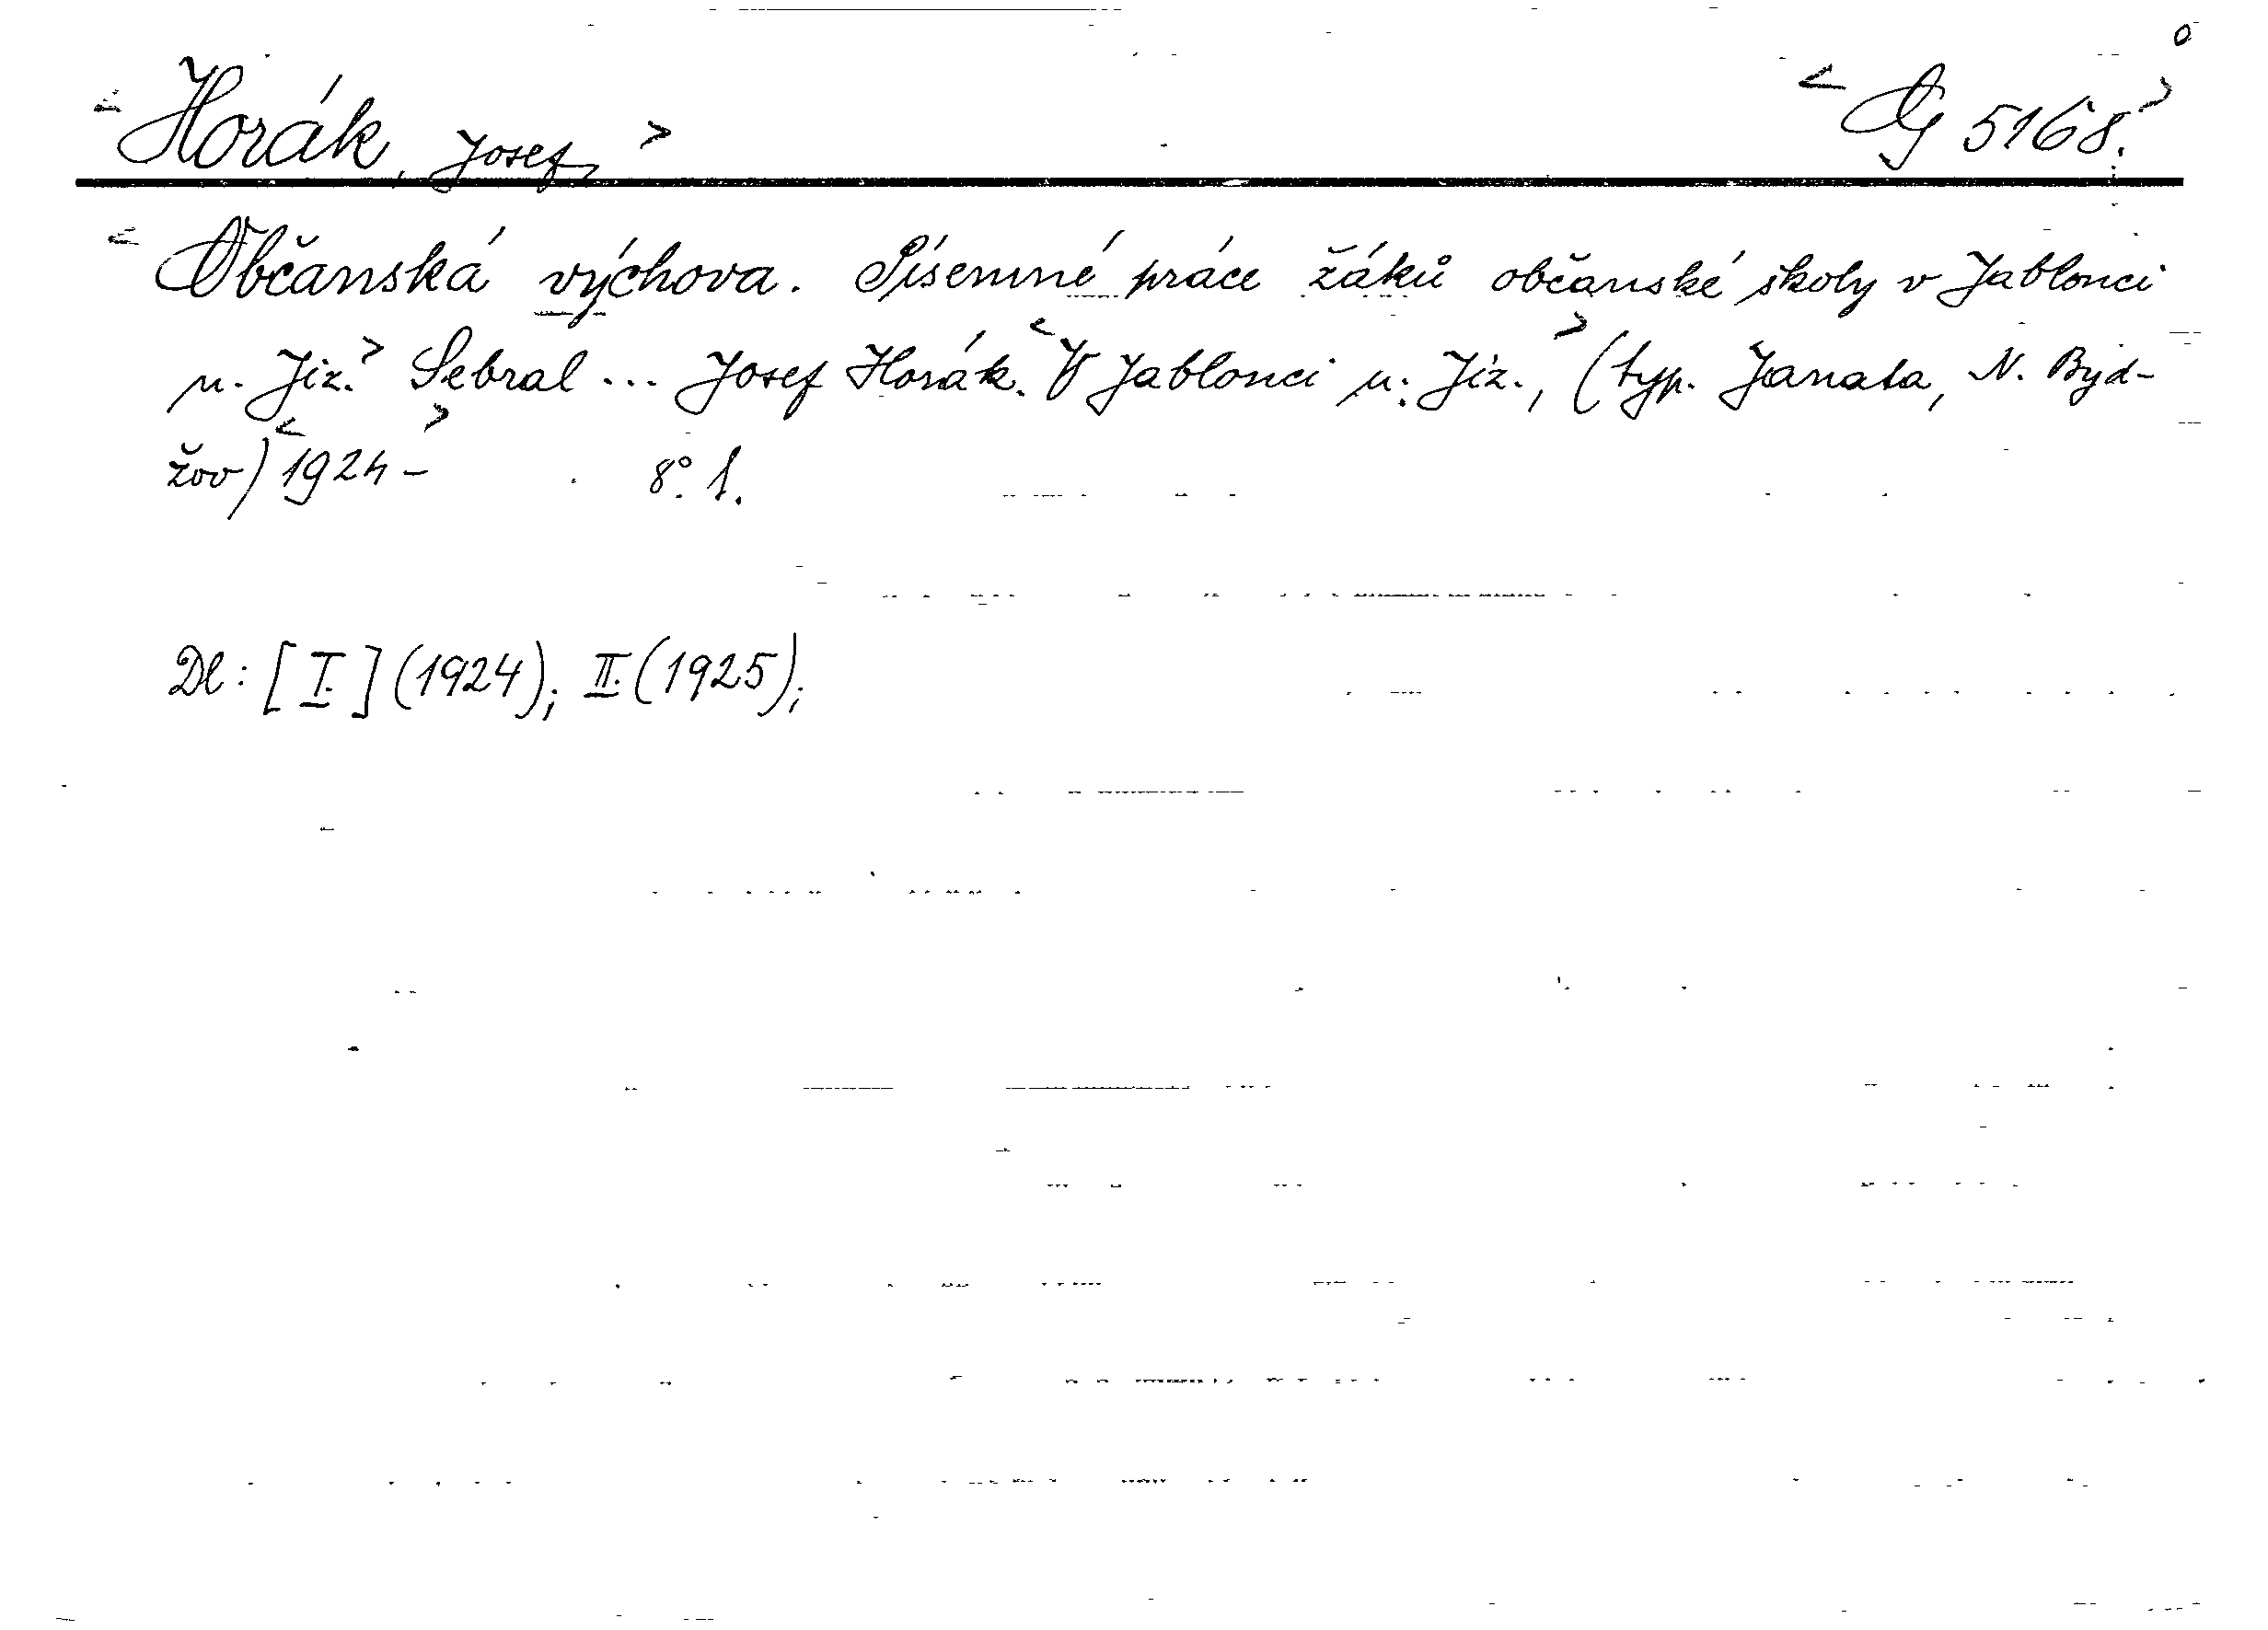 <Horák, Josef,> <G 5168.>
<Občanská výchova. Písemné práce žáků občanské školy v Jablonci
n. Jiz.> Sebral ... Josef Horák. <V Jablonci n. Jiz.,> (typ. Janata, N. Byd-
žov) <1924-> 8°. 1.
Dl: [I.] (1924); II. (1925);